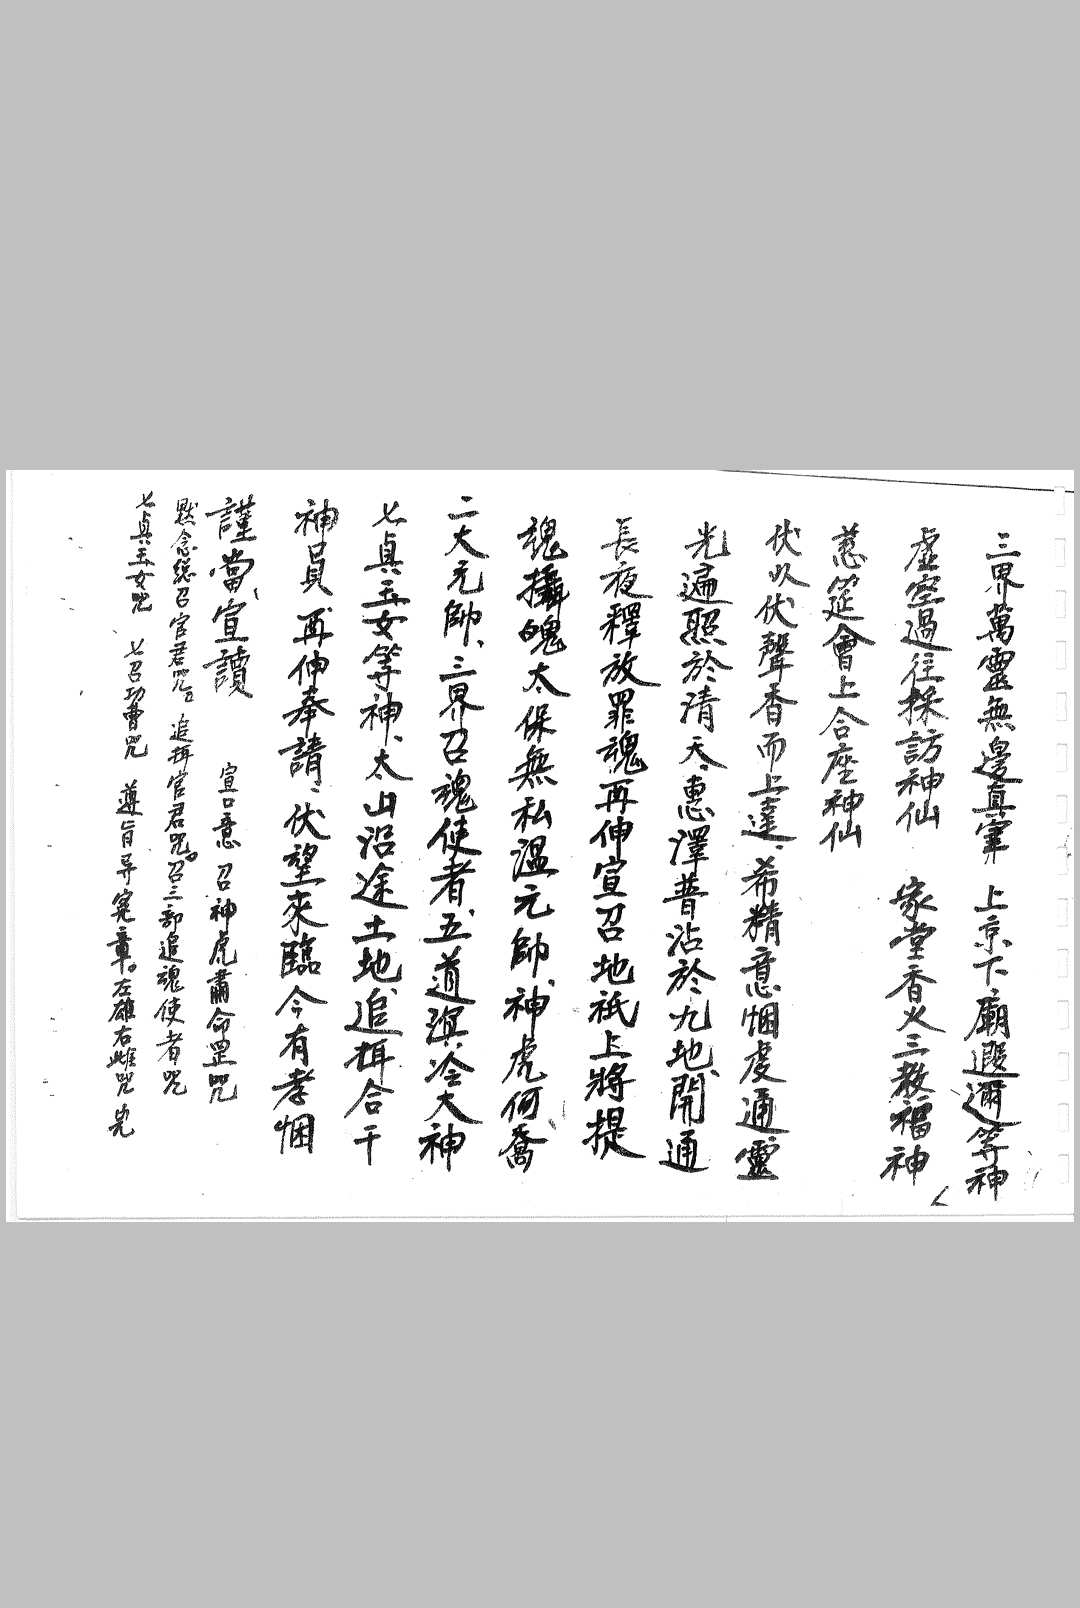 三界萬靈無邊真宰　上京下廟遐邇等神
虛空過往採訪神仙　家堂香火三教福神
慈筵會上合座神仙
伏以伏聲香而上達、希精意悃虔通靈
光遍照於清天、惠澤普沾於九地、開通
長夜釋放罪魂再伸宣召地祇上將提
魂攝魄太保無私溫元帥、神虎何喬
二大元帥、三界召魂使者、五道溟泠大神
七真玉女等神、太山沿途土地追攝合干
神員、再伸奉請、伏望來臨今有孝悃
謹當宣讀　宣口意　召神虎肅命罡咒
默念總召官君咒　追攝官君咒　召三部追魂使者咒
七真玉女咒　七召功曹咒　遵旨寻寃章　左雄右雌咒